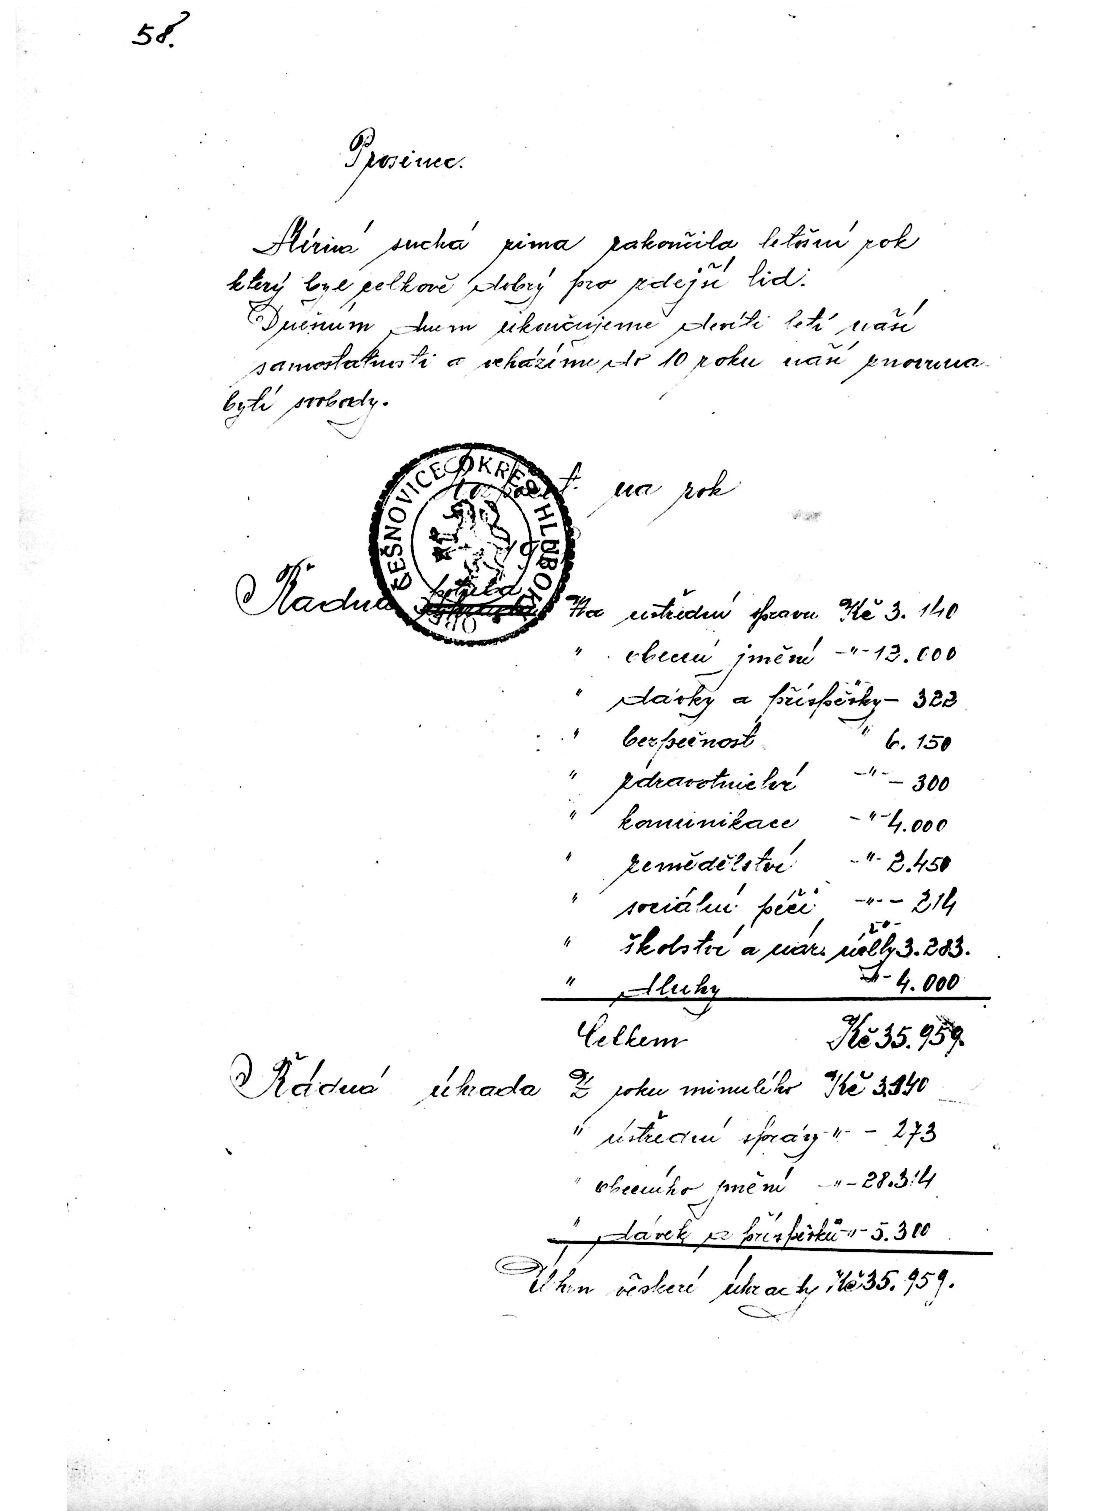 58.
Prosinec.
Mírná suchá zima zakončila letošní rok
který byl celkově dobrý pro zdejší lid.
Dnešním dnem ukončujeme devíti letí naší
samostatnosti a vcházíme do 10 roku naší znovuna
bytí svobody.
OBEC ČEŠNOVICE OKRES HLUBOKÁ
na rok
Řádná potřeba Na ustřední spravu Kč 3.140
" obecní jmění -"- 12.000
" dávky a příspěvky - 322
" bezpečnost " 6.150
" zdravotnictví -"- - 300
" komunikace -"- 4.000
" zemědělství -"- 2.450
" sociální péči -"- - 214
" školství a nár. 3.283.
" dluhy -"- 4.000
Celkem Kč 35.959.
Řádná úhrada Z roku minulého Kč
" ústřední správy -"- - 273
" obecního jmění -"- 28.314
" dávek a příspěvků -"- 5.300
Úhrn veškeré úhrady Kč 35.959.